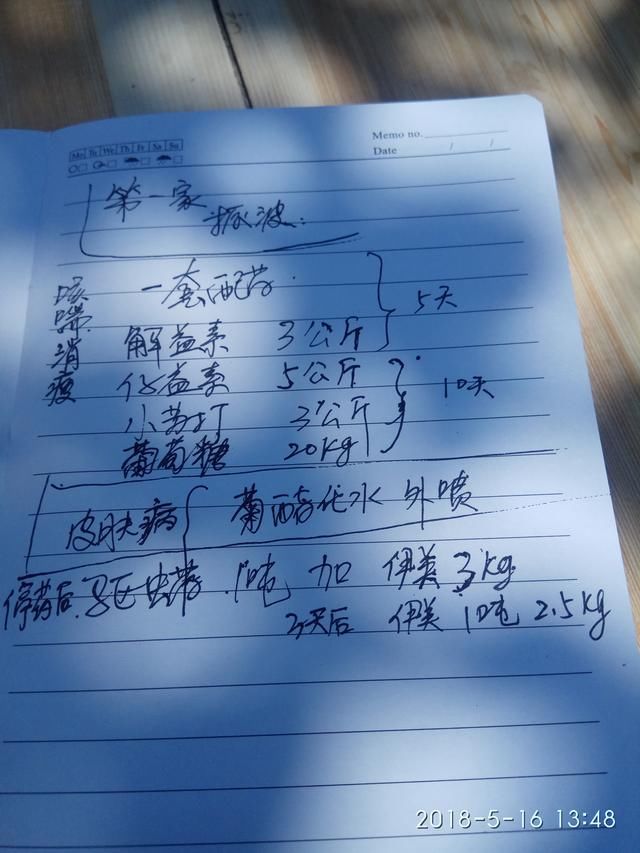 Memo no.
Mo Tu We Th Fr Sa Su
Date / /
第一家
振波:
咳喘消瘦
一套配药. 5天
解益素 3公斤
仔益素 5公斤 10天
小苏打 3公斤
葡萄糖 20kg
皮肤病 菊酯化水 外喷
停药后. 驱虫药. 1吨 加 伊美 3kg
3天后 伊美 1吨 2.5kg
2018-5-16 13:48